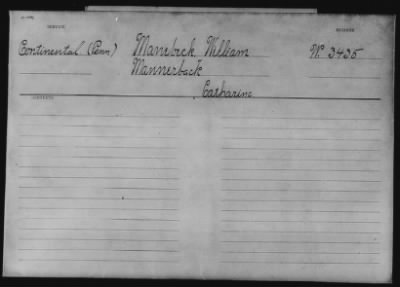 SERVICE
NUMBER
Continental (Penn)
Manebeck William
W. 3435
Mannerback
Catharine
CONTENTS